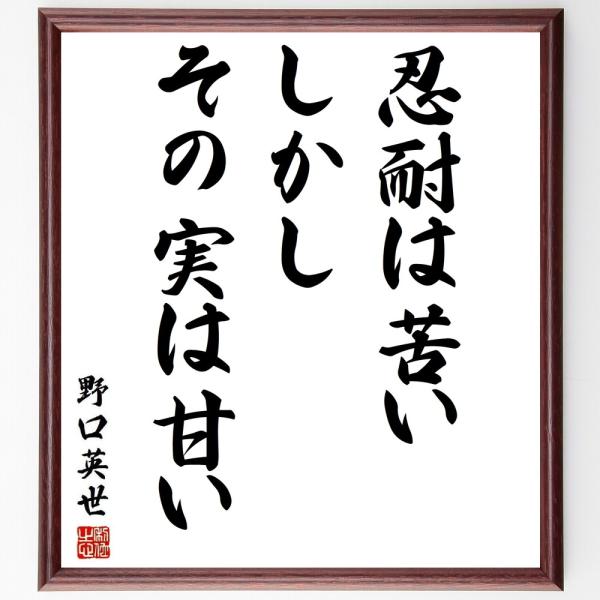 忍耐は苦い
しかし
その実は甘い
野口英世